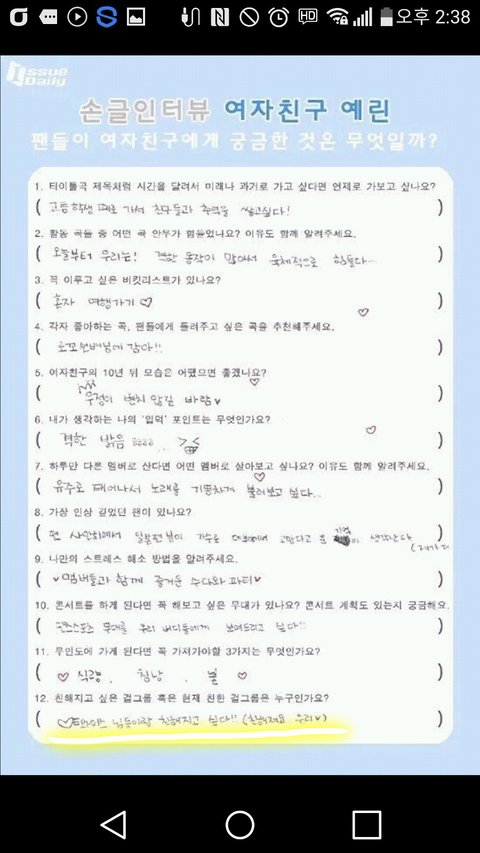 HD
오후 2:38
Issue Daily
손글인터뷰 여자친구 예린
팬들이 여자친구에게 궁금한 것은 무엇일까?
1. 타이틀곡 제목처럼 시간을 달려서 미래나 과거로 가고 싶다면 언제로 가보고 싶나요?
( 고등학생 때로 가서 친구들과 추억을 쌓고싶다! )
2. 활동 곡들 중 어떤 곡 안무가 힘들었나요? 이유도 함께 알려주세요.
( 오늘부터 우리는! 격한 동작이 많아서 육체적으로 힘들다... )
3. 꼭 이루고 싶은 버킷리스트가 있나요?
( 혼자 여행가기♡ )
4. 각자 좋아하는 곡, 팬들에게 들려주고 싶은 곡을 추천해주세요.
( 로꼬선배님에 감아!! )
5. 여자친구의 10년 뒤 모습은 어땠으면 좋겠니요?
( 우정이 변치 않길 바람♥ )
6. 내가 생각하는 나의 '입덕' 포인트는 무엇인가요?
( 격한 밝음 ... )
7. 하루만 다른 멤버로 산다면 어떤 멤버로 살아보고 싶나요? 이유도 함께 알려주세요.
( 유주로 태어나서 노래를 기똥차게 불러보고 싶다... )
8. 가장 인상 깊었던 팬이 있나요?
( 팬 사인회에서 일본팬분이 가수로 데뷔해줘서 고맙다고 운 기억이 생각난다 )
9. 나만의 스트레스 해소 방법을 알려주세요.
( ♥멤버들과 함께 즐거운 수다와 파티♥ )
10. 콘서트를 하게 된다면 꼭 해보고 싶은 무대가 있나요? 콘서트 계획도 있는지 궁금해요.
( 댄스스포츠 무대를 우리 버디들에게 보여드리고 싶다!! )
11. 무인도에 가게 된다면 꼭 가져가야할 3가지는 무엇인가요?
( ♡ 식량, 침낭, 불 ♡ )
12. 친해지고 싶은 걸그룹 혹은 현재 친한 걸그룹은 누구인가요?
( ♡트와이스 님들이랑 친해지고 싶다!! (친해져요 우리♥) )